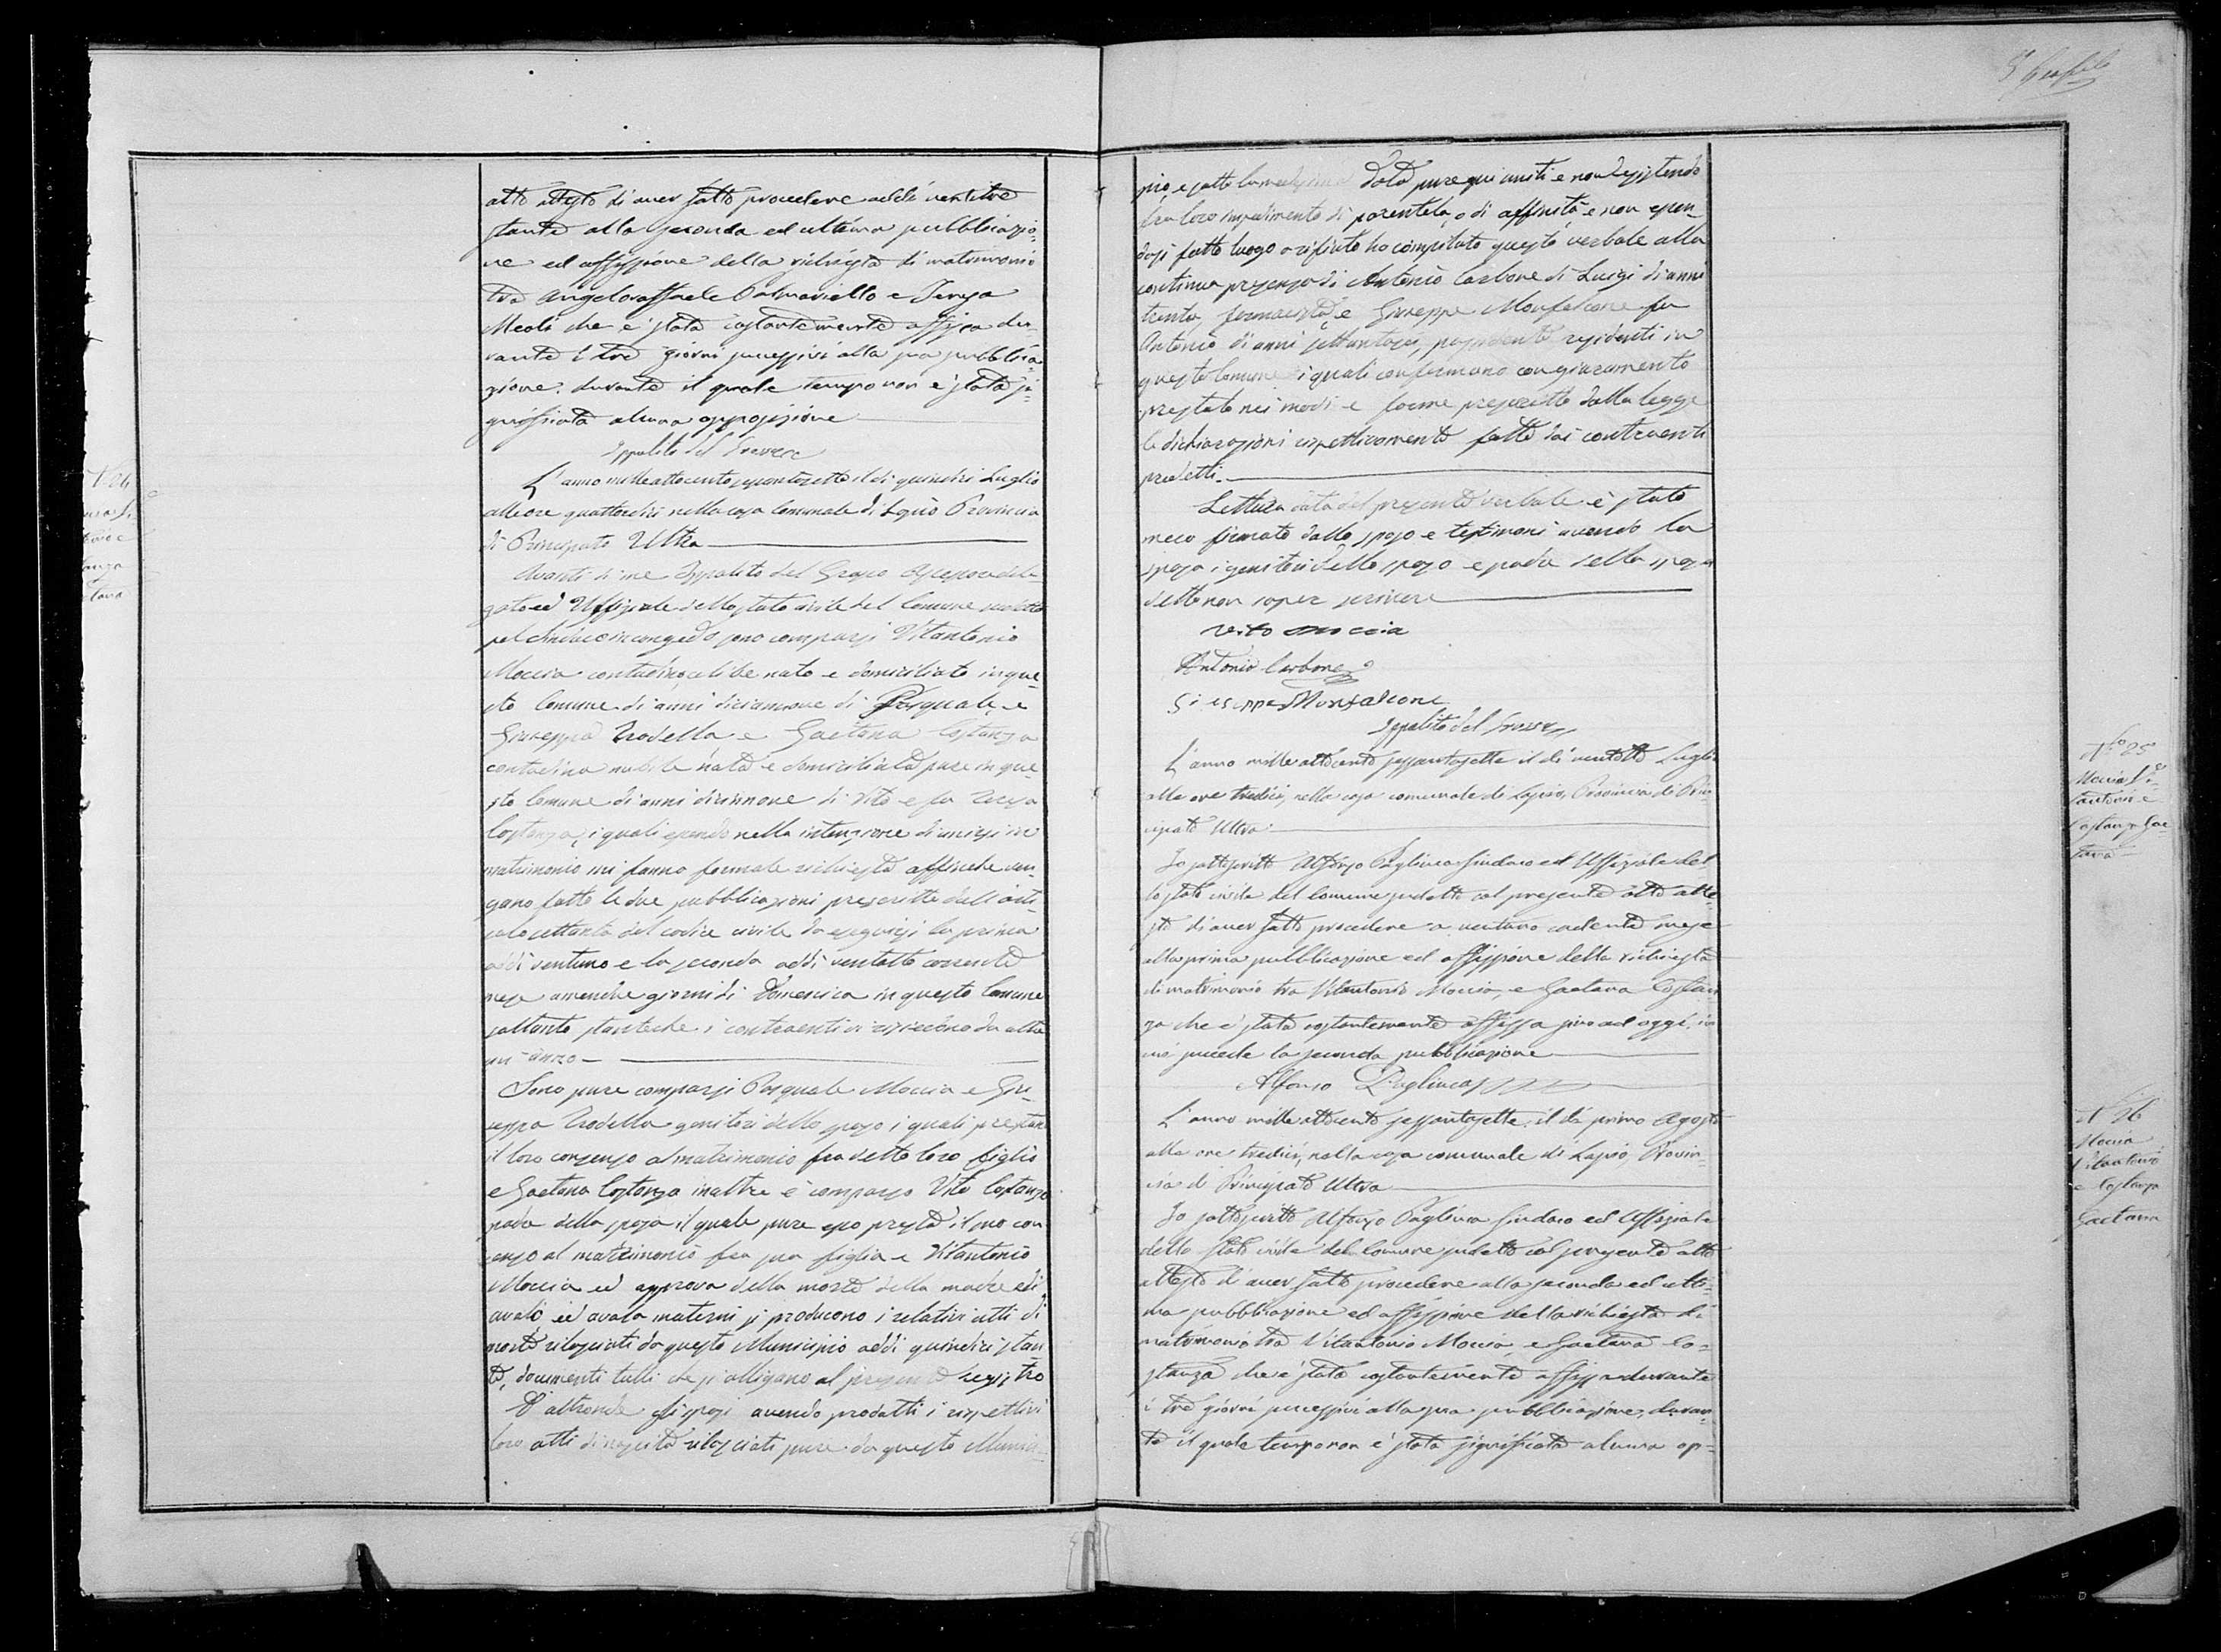 atto attesto di aver fatto procedere addì ventitre
stante alla seconda ed ultima pubblicazio-
ne ed affissione della richiesta di matrimonio
tra Angeloraffaele Palmariello e Teresa
Meoli che è stata costantemente affissa du-
rante i tre giorni successivi alla sua pubblica-
zione: durante il quale tempo non è stata si-
gnificata alcuna opposizione
Ippolito del Grosso
L'anno milleottocento sessantasette il dì quindici Luglio
alle ore quattordici nella casa Comunale di Lapio Provincia
di Principato Ultra
Avanti di me Ippolito del Grosso Assessore dele-
gato ed Uffiziale dello stato civile del Comune suddetto
pel Sindaco in congedo sono comparsi Vitantonio
Moccia contadino celibe nato e domiciliato in que-
sto Comune di anni diciannove di Pasquale e
Giuseppa Trodella e Gaetana Costanza
contadina nubile nata e domiciliata pure in que-
sto Comune di anni diciannove di Vito e fu Teresa
Costanza, i quali essendo nella intenzione di unirsi in
matrimonio mi fanno formale richiesta affinche ven-
gano fatte le due pubblicazioni prescritte dall'arti-
colo settanta del codice civile da eseguirsi la prima
addì ventuno e la seconda addì ventotto corrente
mese amendue giorni di Domenica in questo Comune
soltanto stanteche i contraenti vi risiedono da oltre
un anno
Sono pure comparsi Pasquale Moccia e Giu-
seppa Trodella genitori dello sposo i quali prestano
il loro consenso al matrimonio fra detto loro figlio
e Gaetana Costanza inoltre è comparso Vito Costanza
padre della sposa il quale pure esso presta il suo con-
senso al matrimonio fra sua figlia e Vitantonio
Moccia ed approva della morte della madre ed
avolo ed avola materni si producono i relativi atti di
morte rilasciati da questo Municipio addì quindici stan-
te, documenti tutti che si alligano al presente registro
D'altronde gli sposi avendo prodotti i rispettivi
loro atti di nascita rilasciati pure da questo Munici-
pio, e fatto la medesima Data pure qui uniti e non esistendo
fra loro impedimento di parentela, o di affinità e non essen-
dosi fatto luogo a rifiuto ho compilato questo verbale alla
continua presenza di Antonio Carbone di Luigi di anni
trenta, farmacista, e Giuseppe Monfalcone fu
Antonio di anni settantasei, possidente residenti in
questo Comune i quali confermano con giuramento
prestato nei modi e forme prescritte dalla legge
le dichiarazioni rispettivamente fatte dai contraenti
predetti.
Lettura data del presente verbale è stato
meco firmato dallo sposo e testimoni avendo la
sposa i genitori dello sposo e padre della sposa
detto non saper scrivere
Vito moccia
Antonio Carbone
Giuseppe Monfalcone
Ippolito del Grosso
L'anno milleottocento sessantasette il dì ventotto Luglio
alle ore tredici, nella casa comunale di Lapio, Provincia di Prin-
cipato Ultra
Io sottoscritto Alfonso Pagliuca Sindaco ed Uffiziale del-
lo stato civile del Comune sudetto col presente atto atte-
sto di aver fatto procedere a ventuno cadente mese
alla prima pubblicazione ed affissione della richiesta
di matrimonio tra Vitantonio Moccia, e Gaetana Costan-
za che è stata costantemente affissa sino ad oggi, in
cui succede la seconda pubblicazione
Alfonso Pagliuca
L'anno milleottocento sessantasette, il dì primo Agosto
alle ore tredici, nella casa comunale di Lapio, Provin-
cia di Principato Ultra
Io sottoscritto Alfonso Pagliuca Sindaco ed Uffiziale
dello stato civile del Comune sudetto col presente atto
attesto di aver fatto procedere alla seconda ed ulti-
ma pubblicazione ed affissione della richiesta di
matrimonio tra Vitantonio Moccia, e Gaetana Co-
stanza che è stata costantemente affissa durante
i tre giorni successivi alla sua pubblicazione, duran-
te il quale tempo non è stata significata alcuna op-
N.o 25
Moccia Vi-
tantonio e
Costanza Gae-
tana
N.o 26
Moccia
Vitantonio
e Costanza
Gaetana